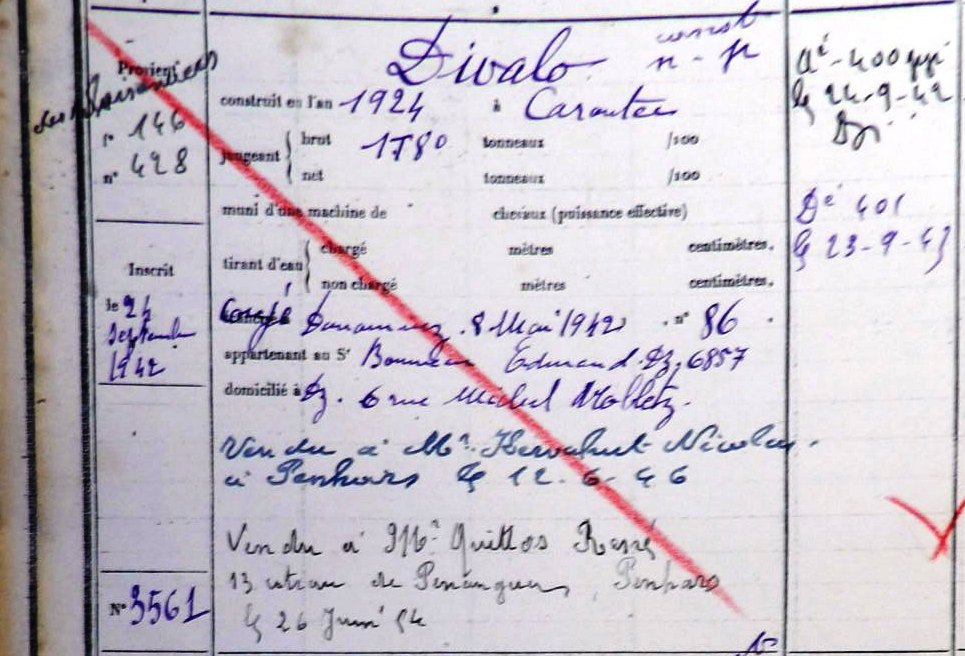 Provient
des Plaisanciers
f° 146
n° 428
Inscrit
le 24
Septembre
1942
N° 3561
Divalo
n - p
construit en l'an 1924 à Carantec
jaugeant { brut 1780 tonneaux /100
net tonneaux /100
muni d'une machine de chevaux (puissance effective)
tirant d'eau { chargé mètres centimètres.
non chargé mètres centimètres.
Congé Douarnenez . 8 Mai 1942 . n° 86 .
appartenant au Sr Edmond. Dz. 6857
domicilié à Dz. 6 rue Michel
Vendu à Mr. Nicolas.
à Penhars le 12-6-46
Vendu à Mr René
13 de Penhars
le 26 Juin 54
400
le 24-9-42
Dz
Dé 401
le 23-9-43